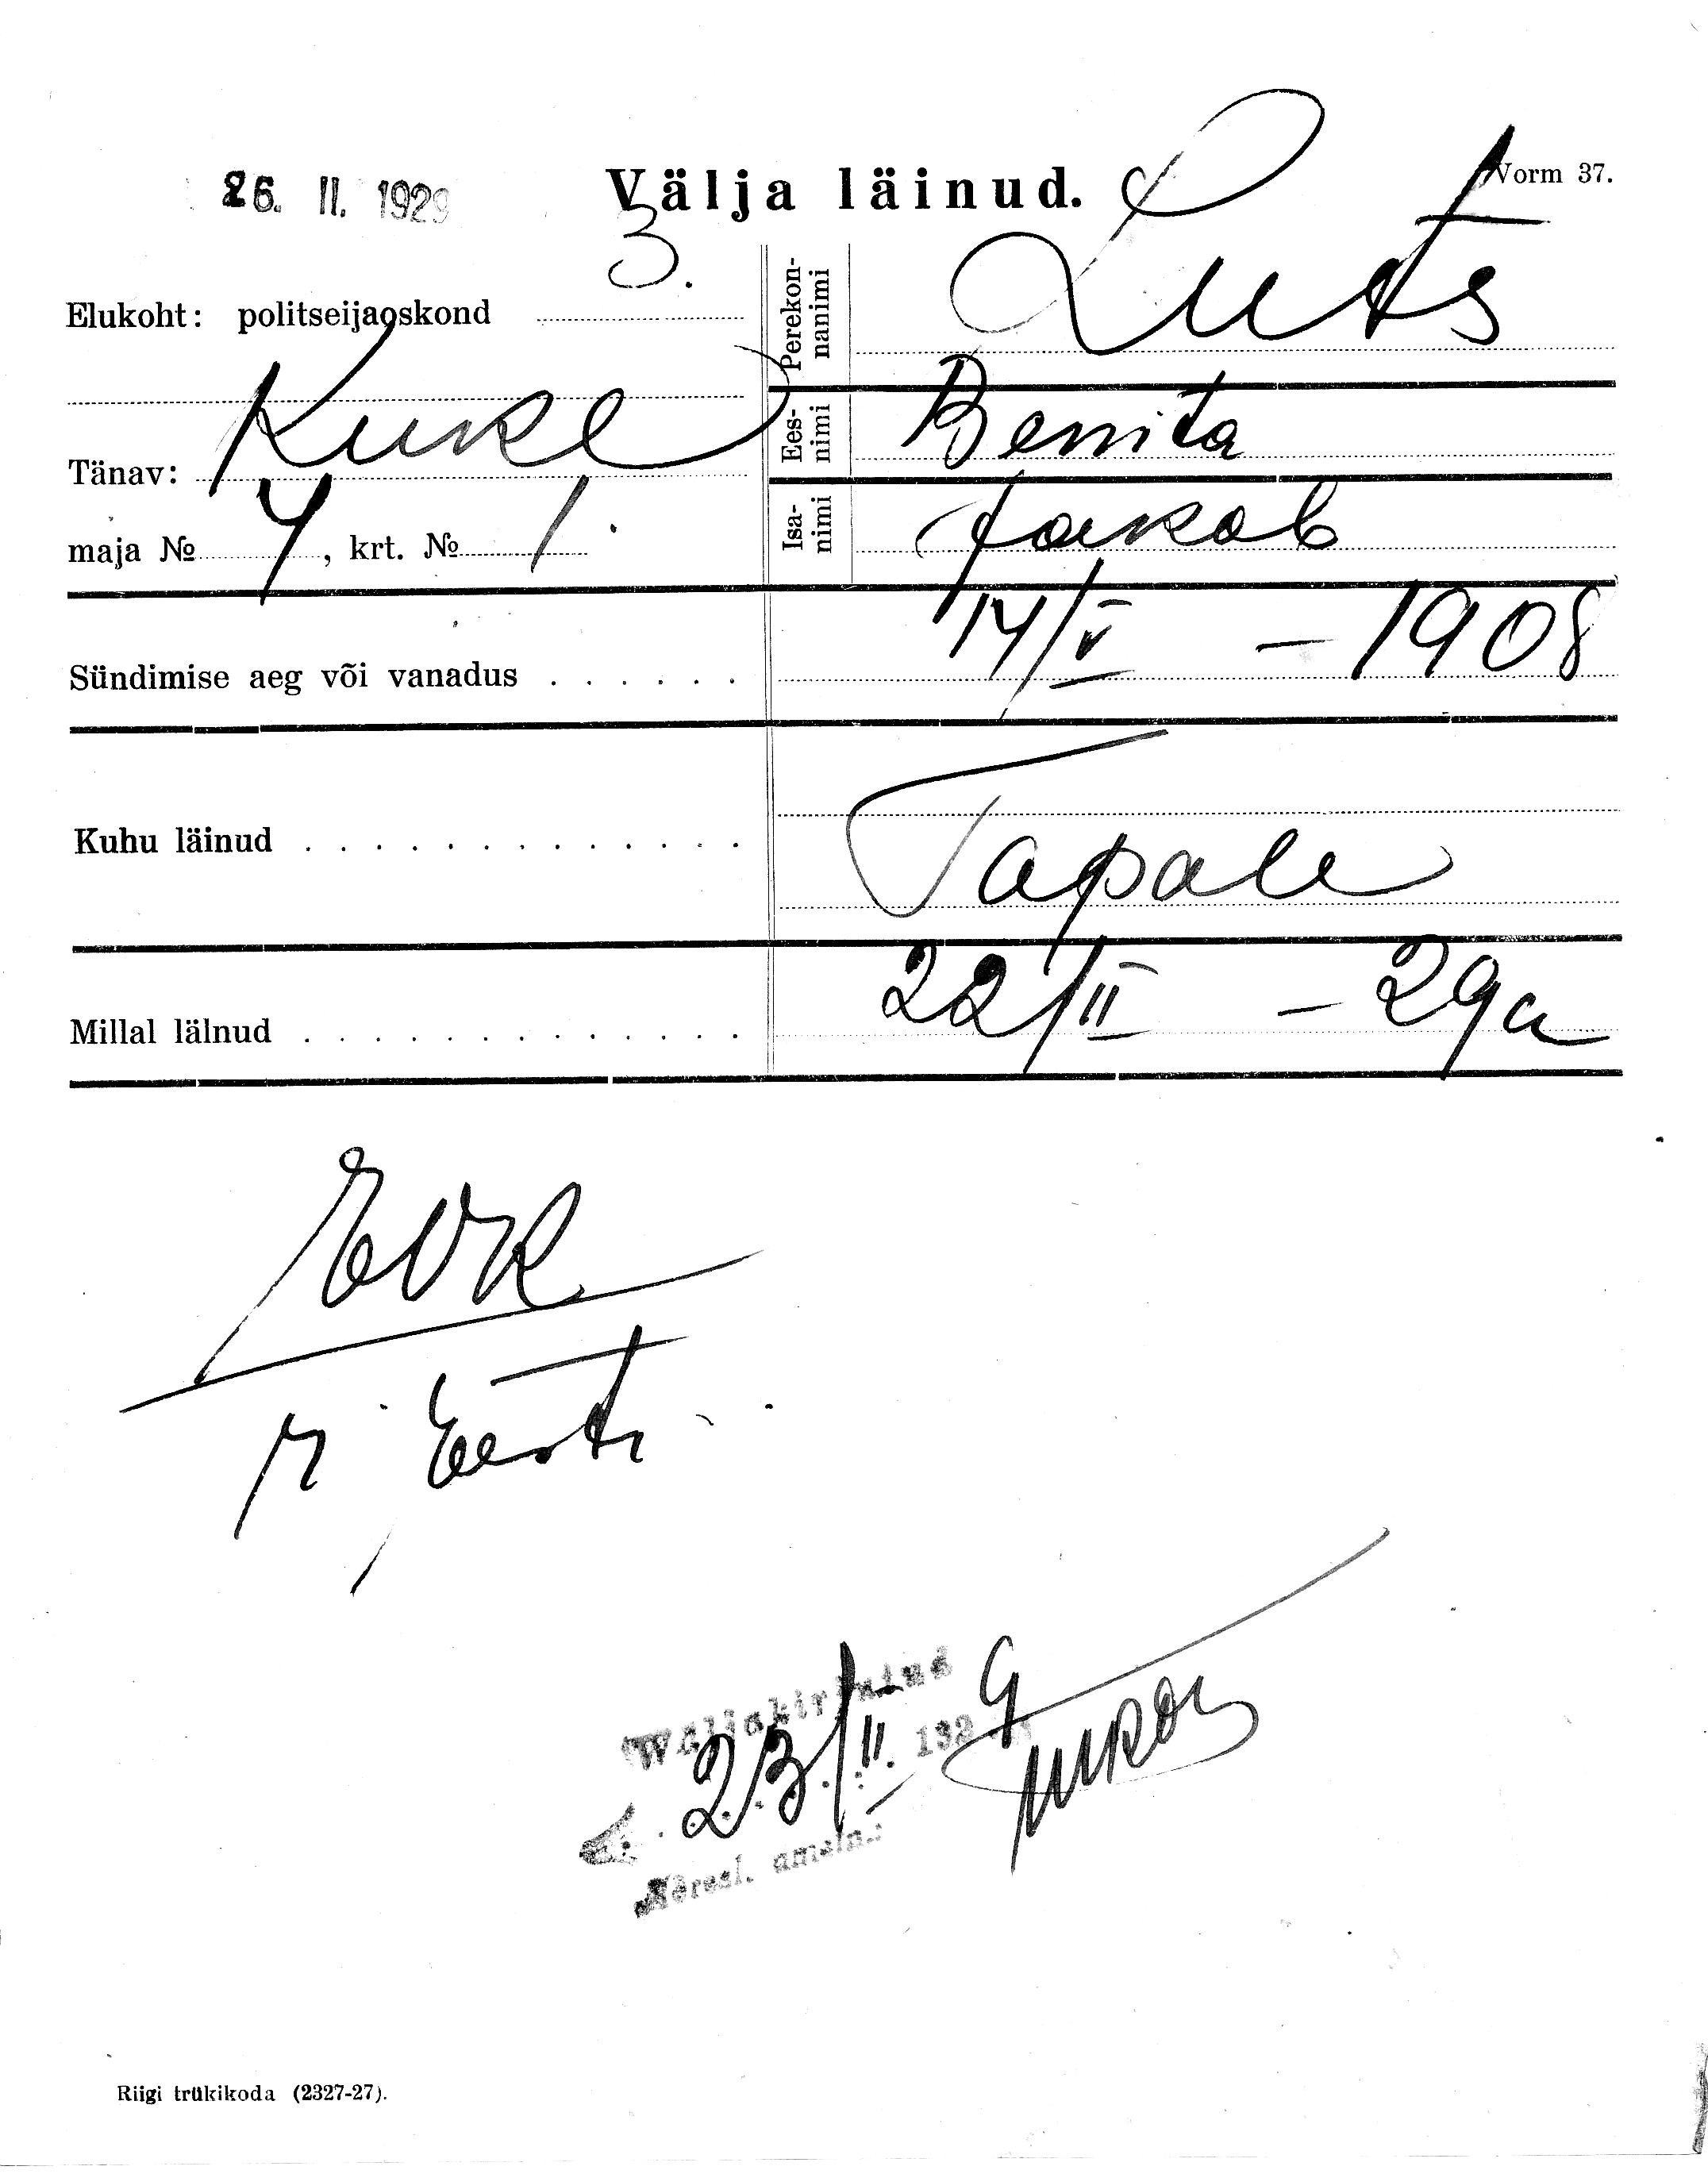 26. II. 1929
Välja läinud.
Vorm 37.
Elukoht: politseijaoskond 3.
Tänav: Kuke
maja № 4, krt. № 1.
Perekonnanimi Luts
Eesnimi Benita
Isanimi Jakob
Sündimise aeg või vanadus . . . . . . 14/V – 1908
Kuhu läinud . . . . . . . . . . . . . Tapale
Millal läinud . . . . . . . . . . . . . 22/II – 29a
EVK
r. Eesti.
Wäljakirjutus
23/II. 1929
Riigi trükikoda (2327-27).